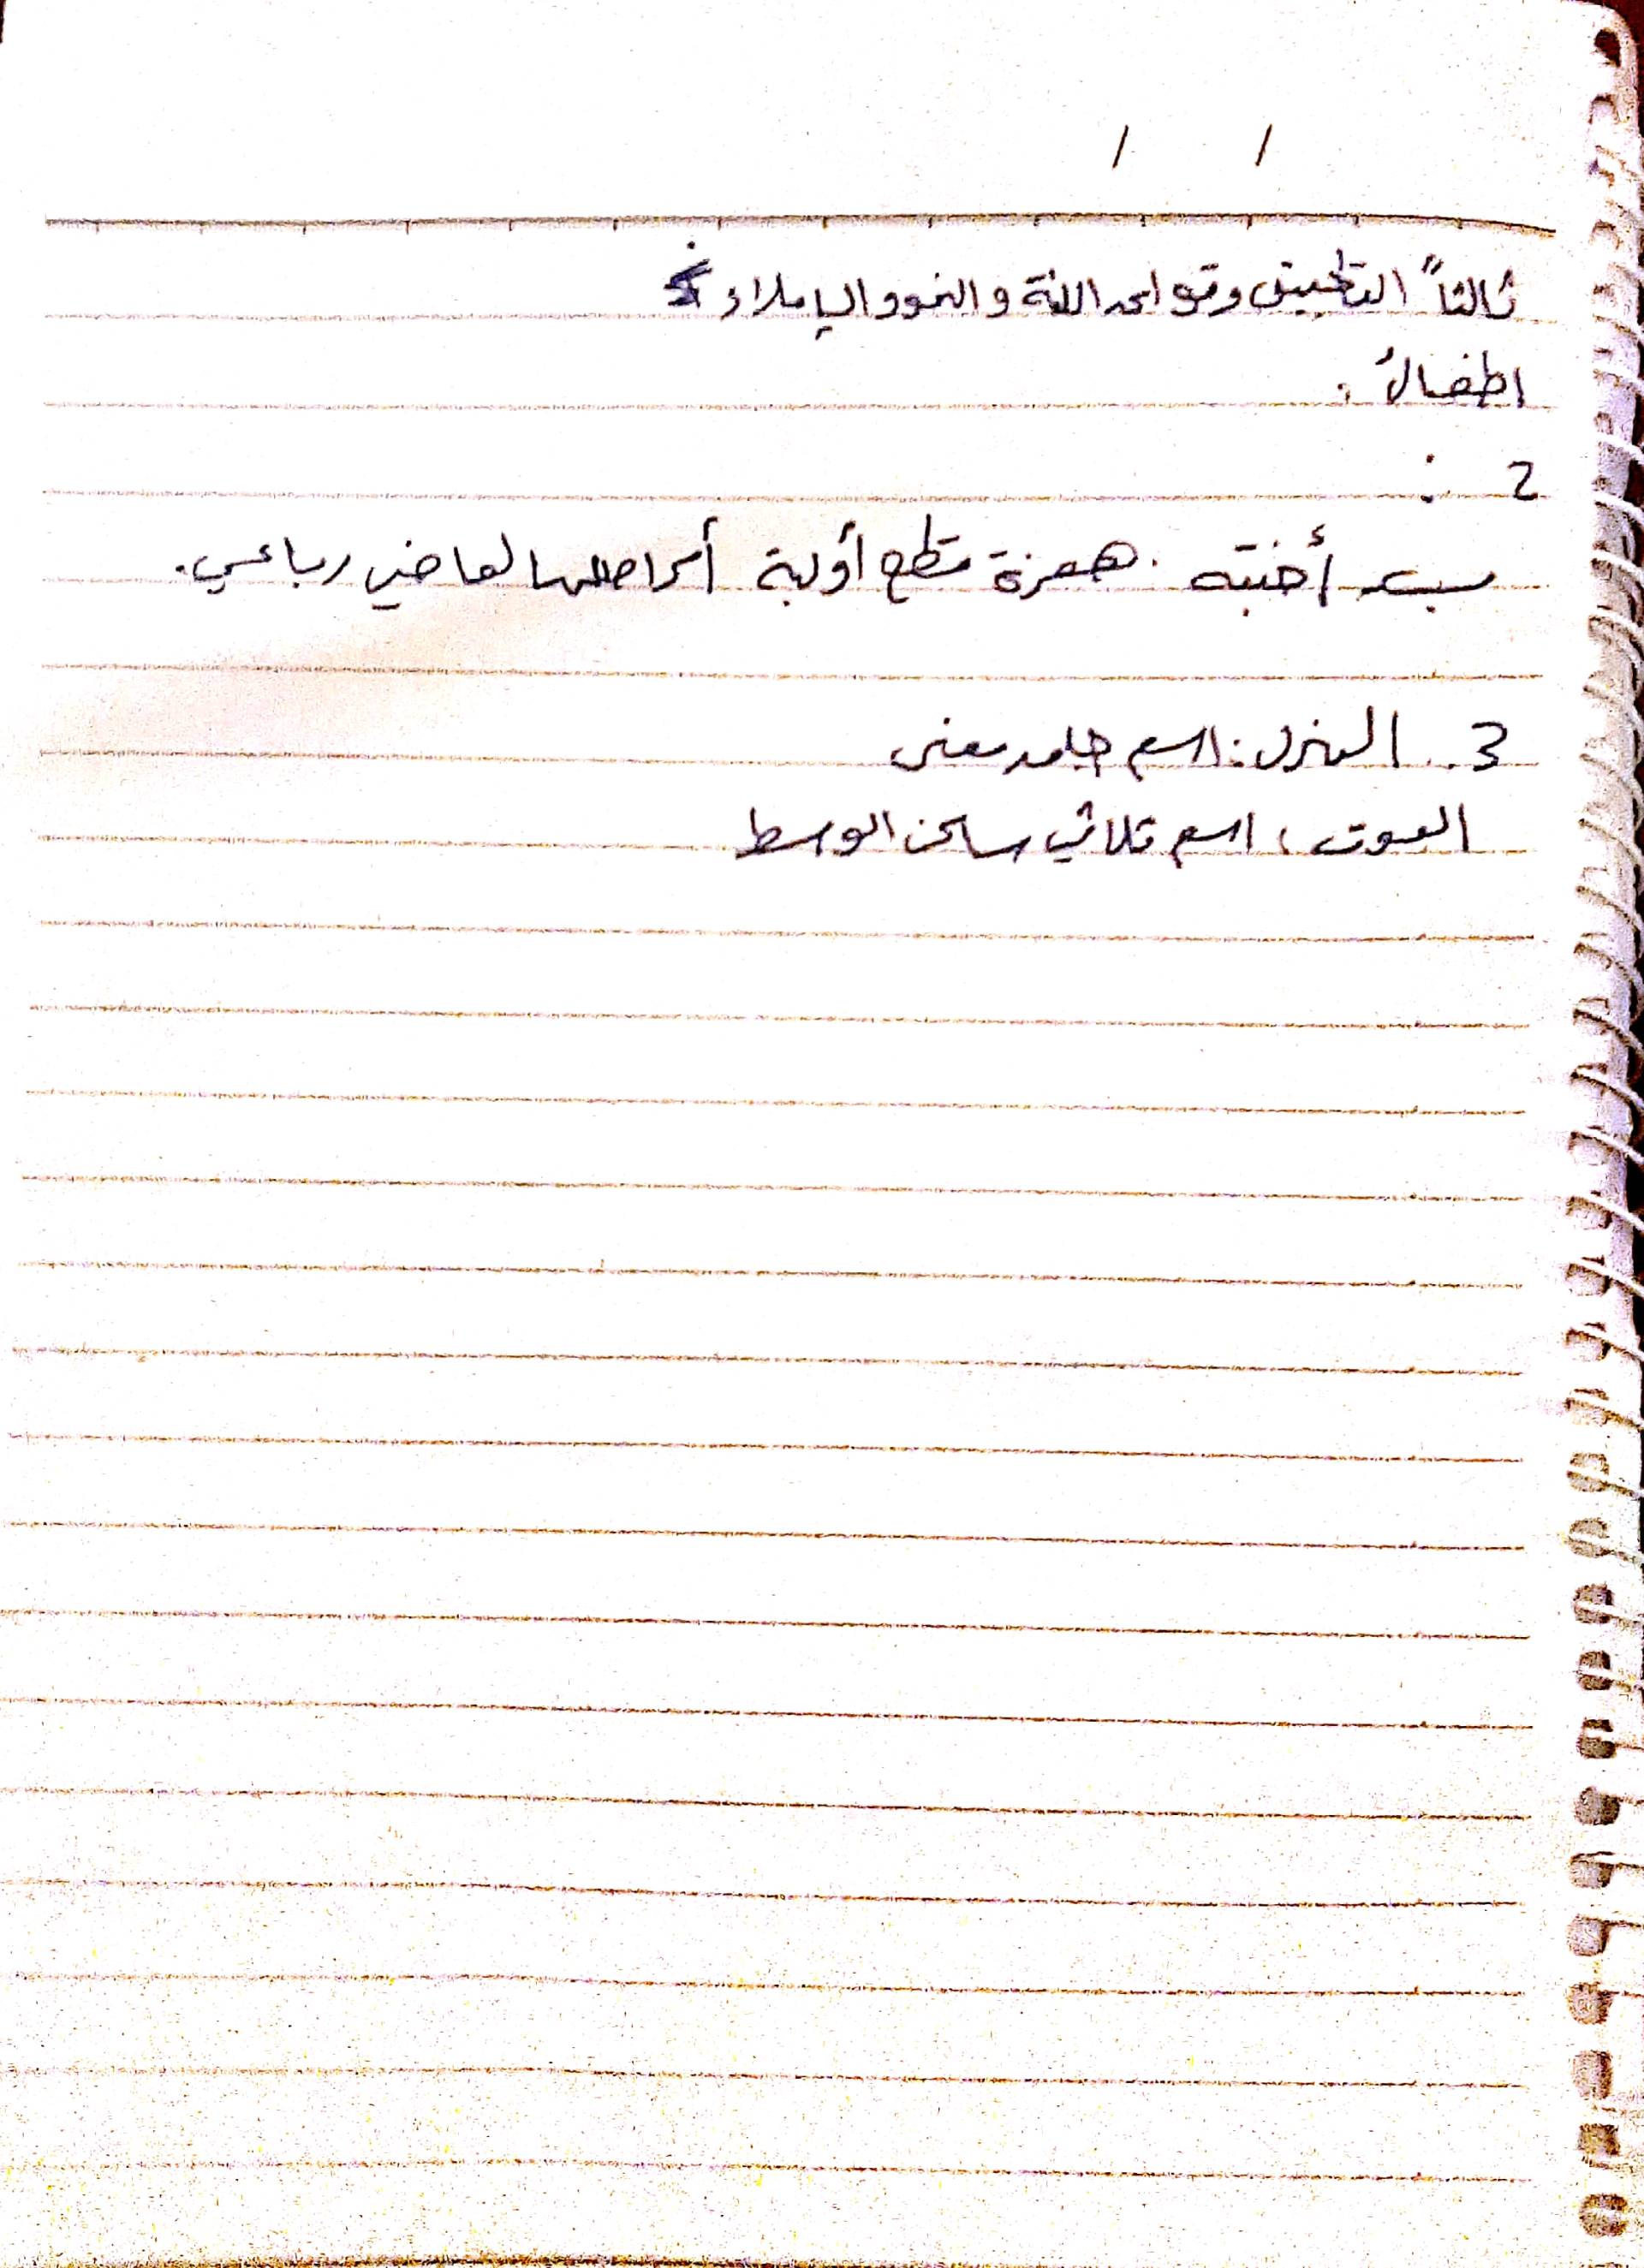 / /
ثالثاً التطبيق وقواعد اللغة والنحو والإملاء
اطفالُ :
2 :
ب أختبئه . همزة قطع أولية أمر أصلها الماضي رباعي.
3 . المنزل : اسم جامد معنى
الموت : اسم ثلاثي ساكن الوسط